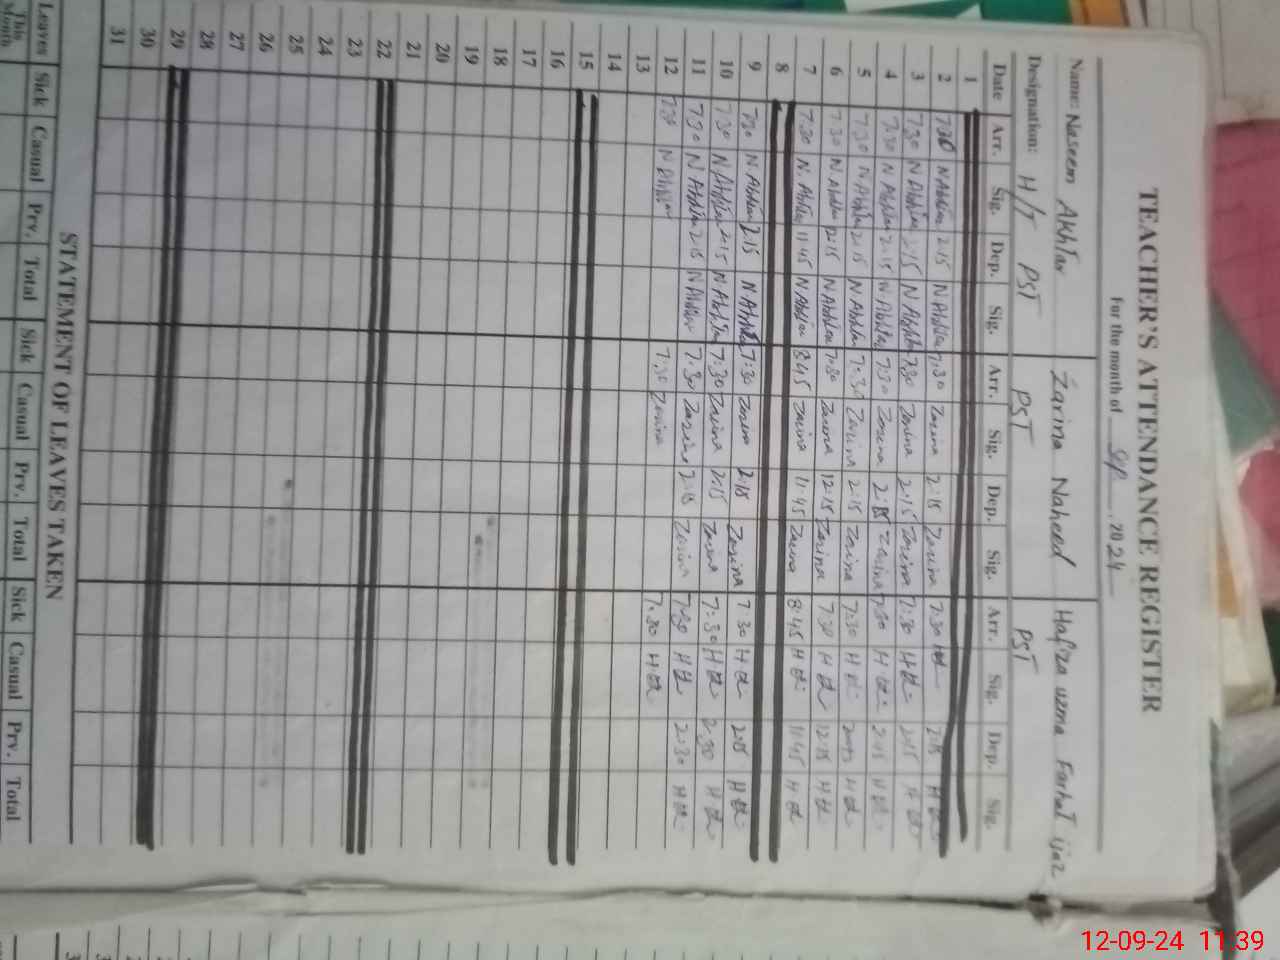 TEACHER'S ATTENDANCE REGISTER
For the month of Sep. 2024
Name: Naseem Akhtar Zarina Naheed Hafiza uzma Farhat ijaz
Designation: H/T PST PST PST
Date Arr. Sig. Dep. Sig. Arr. Sig. Dep. Sig. Arr. Sig. Dep. Sig.
1
2 7:30 N Akhtar 2:15 N Akhtar 7:30 Zarina 2:15 Zarina 7:30 2:15
3 7:30 N Akhtar 2:15 N Akhtar 7:30 Zarina 2:15 Zarina 7:30 2:15
4 7:30 N Akhtar 2:15 N Akhtar 7:30 Zarina 2:15 Zarina 7:30 2:15
5 7:30 N Akhtar 2:15 N Akhtar 7:30 Zarina 2:15 Zarina 7:30
6 7:30 N Akhtar 12:15 N Akhtar 7:30 Zarina 12:15 Zarina 7:30 12:15
7 7:30 N. Akhtar 11:45 N Akhtar 8:45 Zarina 11:45 Zarina 8:45 11:45
8
9 7:30 N Akhtar 2:15 N Akhtar 7:30 Zarina 2:15 Zarina 7:30 2:15
10 7:30 N Akhtar 2:15 N Akhtar 7:30 Zarina 2:15 Zarina 7:30 2:30
11 7:30 N Akhtar 2:15 N Akhtar 7:30 Zarina 2:15 Zarina 7:30 2:30
12 7:30 N Akhtar 7:30 Zarina 7:30
13
14
15
16
17
18
19
20
21
22
23
24
25
26
27
28
29
30
31
STATEMENT OF LEAVES TAKEN
Leaves Sick Casual Prv. Total Sick Casual Prv. Total Sick Casual Prv. Total
This Month
12-09-24 11:39